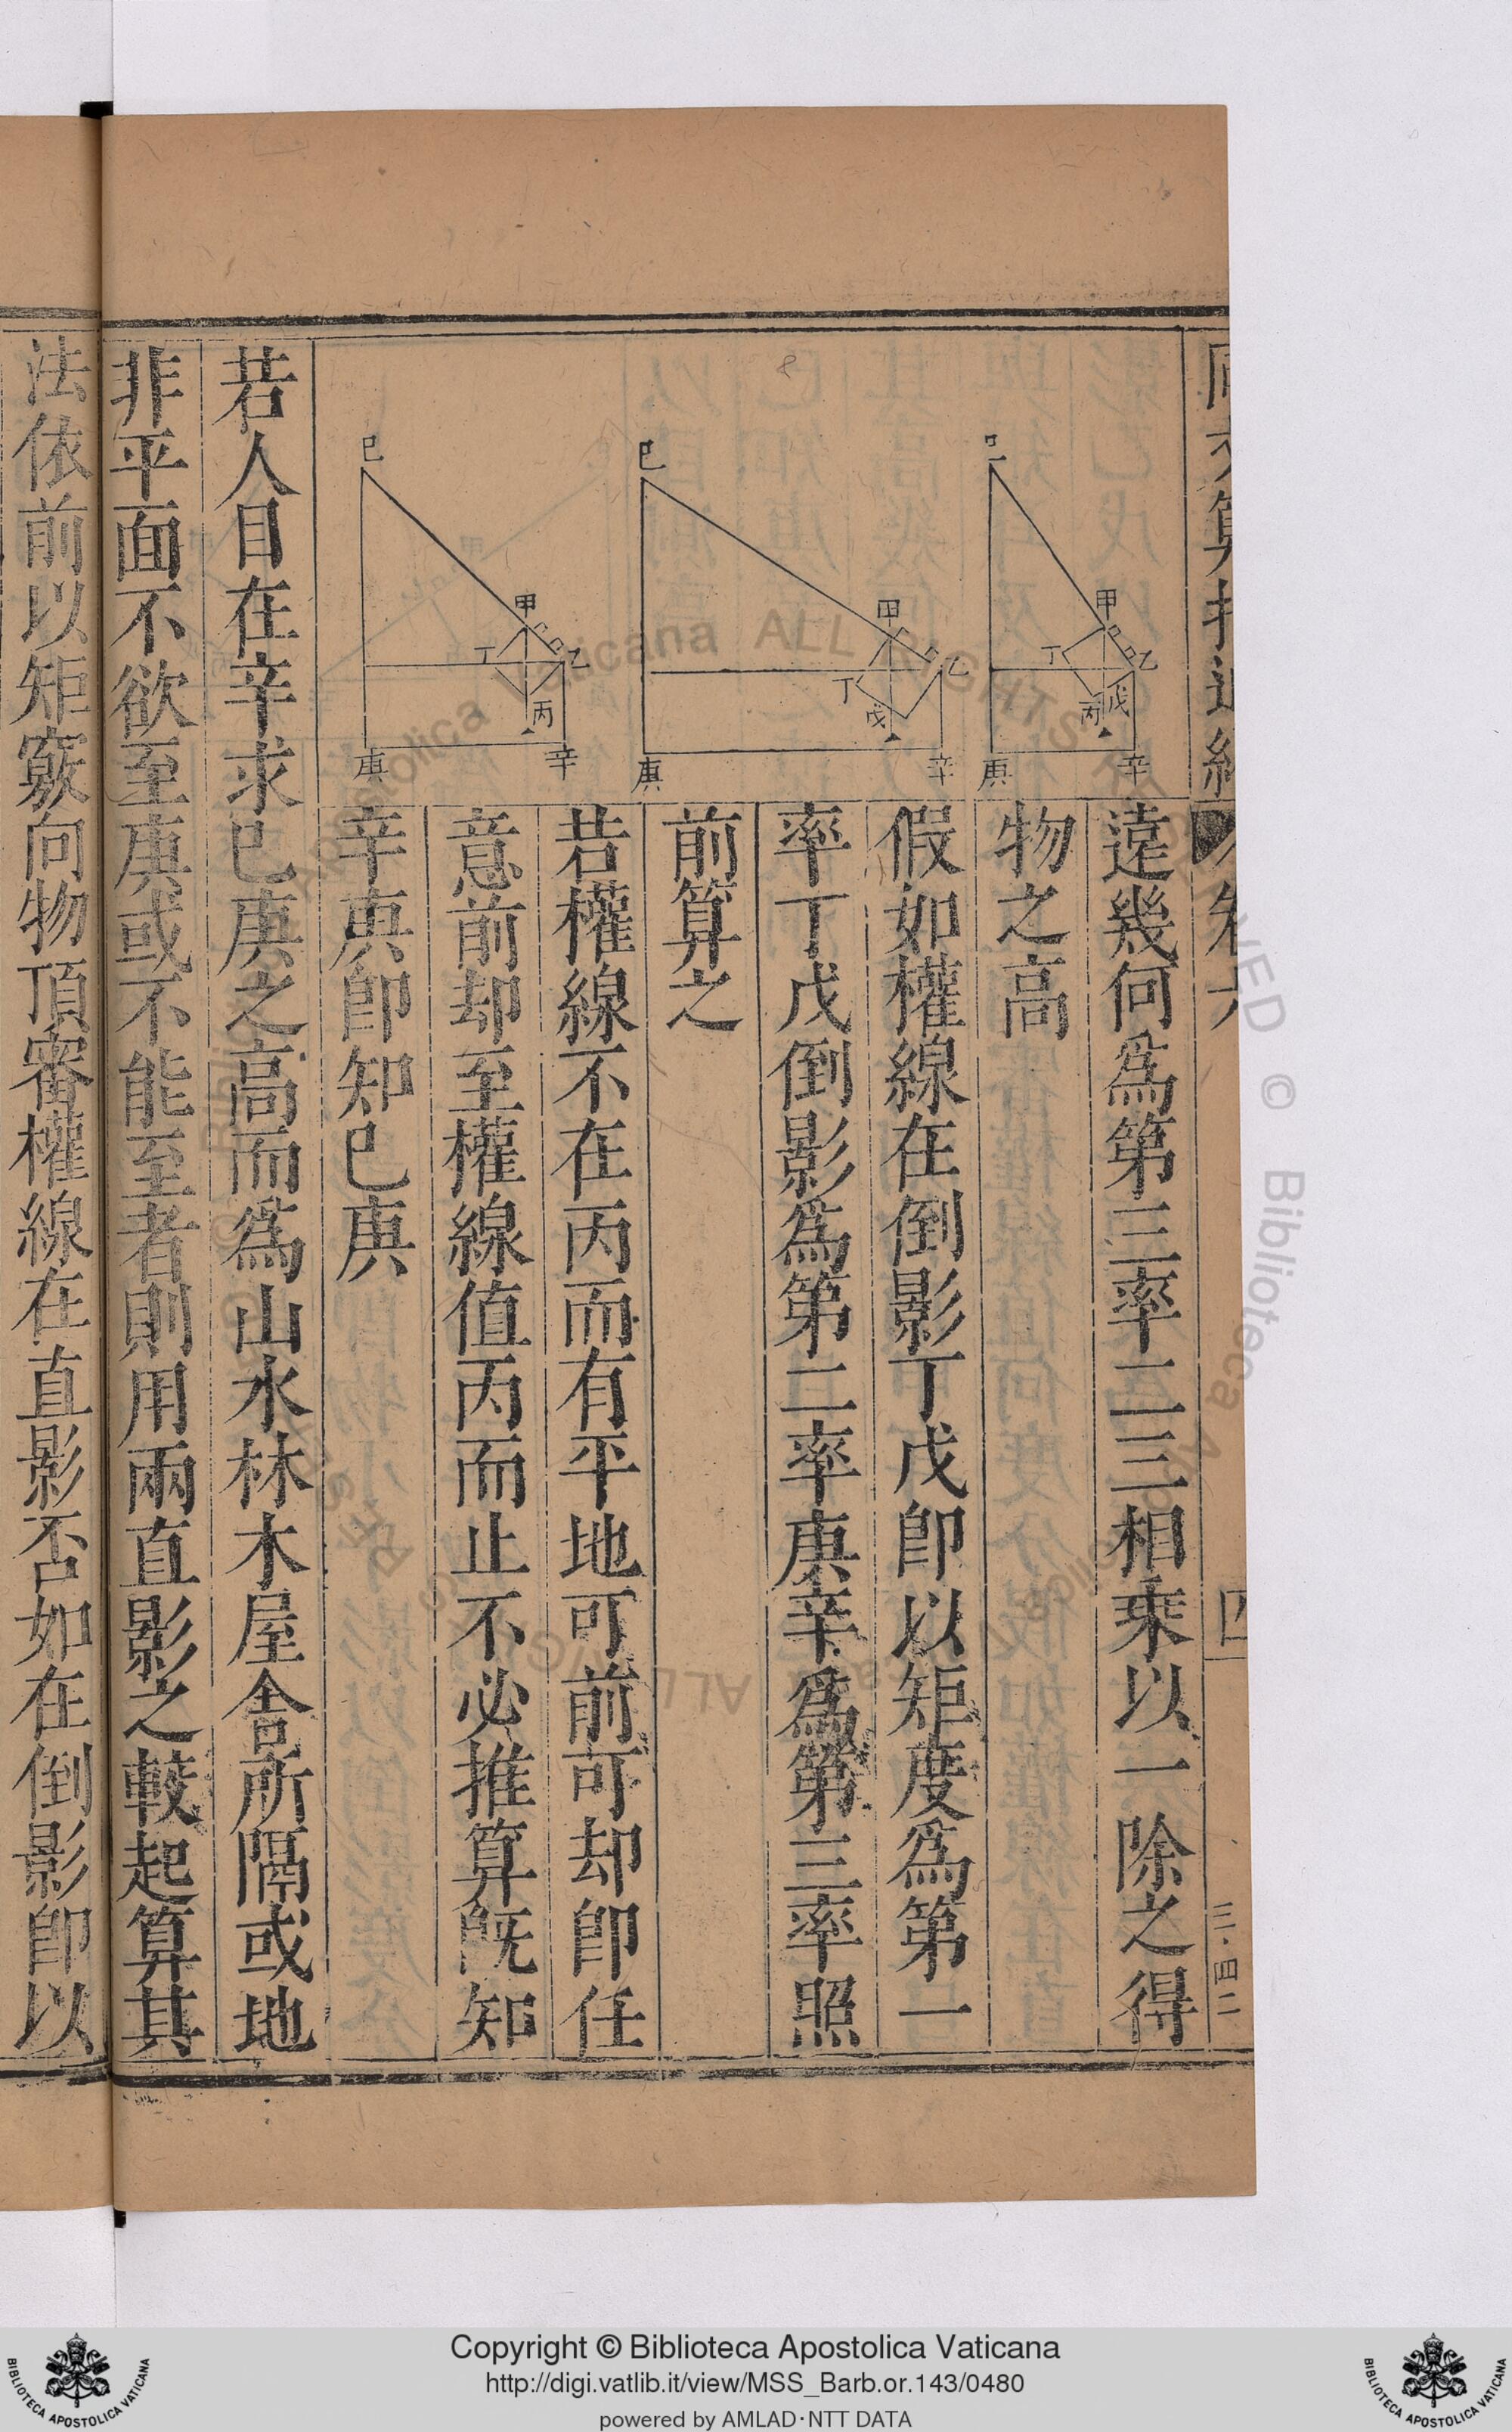 遠幾何爲第三率二三相乘以一除之得
物之高
假如權線在倒影丁戊卽以矩度爲第一
率丁戊倒影爲第二率庚辛爲第三率照
前算之
若權線不在丙而有平地可前可却卽任
意前却至權線值丙而止不必推算旣知
辛庚卽知巳庚
若人目在辛求巳庚之高而爲山水林木屋舍所隔或地
非平面不欲至庚或不能至者則用兩直影之較起算其
法依前以矩竅向物頂審權線在直影否如在倒影卽以
甲
丁
乙
丙
戊
庚
辛
巳
甲
丁
乙
戊
庚
辛
巳
甲
丁
乙
丙
庚
辛
8
三·四二
Copyright © Biblioteca Apostolica Vaticana
http://digi.vatlib.it/view/MSS_Barb.or.143/0480
powered by AMLAD·NTT DATA
BIBLIOTECA APOSTOLICA VATICANA
BIBLIOTECA APOSTOLICA VATICANA